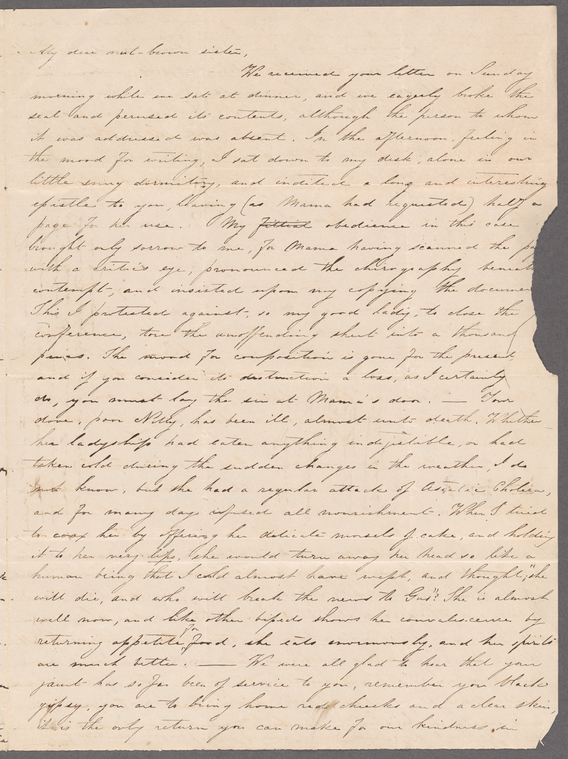 My dear nut-brown sister,
We received your letter on Sunday
morning while we sat at dinner, and we eagerly broke the
seal and perused its contents, although the person to whom
it was addressed was absent. In the afternoon, feeling in
the mood for writing, I sat down to my desk, alone in our
little snug dormitory, and indited a long and interesting
epistle to you, leaving (as Mama had requested) half a
page for her use. My obedience in this case
brought only sorrow to me, for Mama having scanned the
with a critic's eye, pronounced the chirography beneath
contempt, and insisted upon my copying the docume
This I protested against, so my good lady, to close the
conference, tore the unoffending sheet into a thousand
pieces. The mood for composition is gone for the present
and if you consider its destruction a loss, as I certainly
do, you must lay the sin at Mama's door. — Your
dove, poor Nelly, has been ill, almost unto death. Whether
her ladyship had eaten anything indigestible, or had
taken cold during the sudden changes in the weather, I do
not know, but she had a regular attack of Asiatic Cholera,
and for many days refused all nourishment. When I tried
to coax her by offering her delicate morsels of cake, and holding
it to her very lips, she would turn away her head so like a
human being that I could almost have wept, and thought, "she
will die, and who will break the news to Gus". She is almost
well now, and like other bipeds shows her convalescence by
returning appetite for food, she eats enormously, and her spirits
are much better. — We were all glad to hear that your
jaunt has so far been of service to you, remember you black
gipsy, you are to bring home red cheeks and a clear skin,
it is the only return you can make for our kindness in